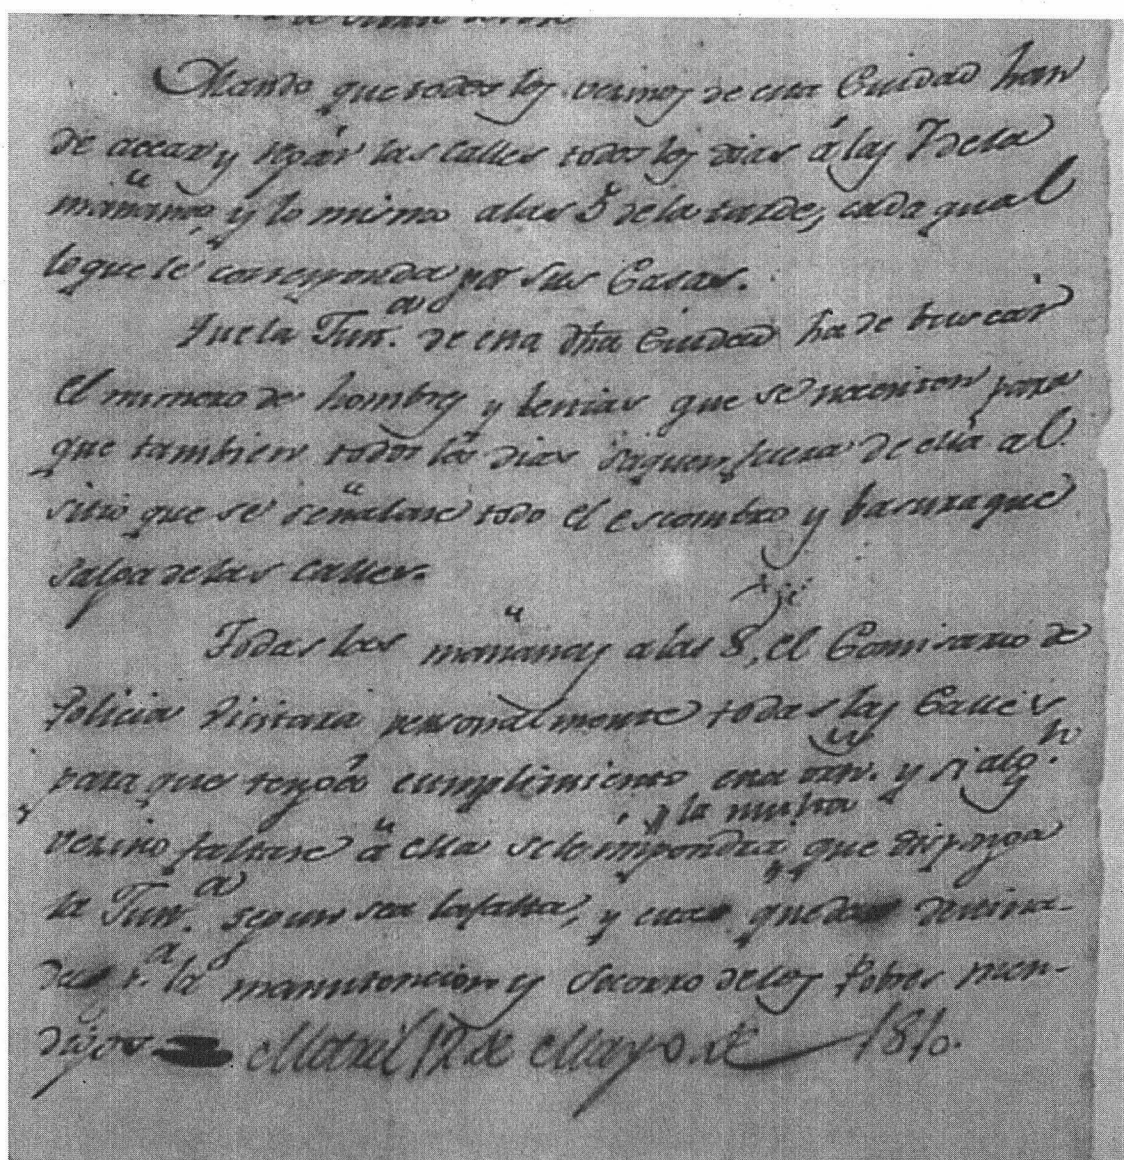 Mando que todos los vecinos de esta Ciudad han
de asear y regar las calles todos los dias á las 7 de la
mañana, y lo mismo a las 5 de la tarde, cada qual
lo que le corresponda por sus Casas.
Que la Jun.ª de esta dha Ciudad ha de buscar
el numero de hombres y bestias que se necesiten para
que tambien todos los dias saquen fuera de ella al
sitio que se señalare todo el escombro y basura que
salga de las calles.
Todas las mañanas a las 8, el Comisario de
Policia visitara personalmente todas las Calles
para que tenga cumplimiento esta orn. y si alg.n
vecino faltare á ella se le impondra la multa que disponga
la Jun.ª segun sea la falta, y esta queda destina-
da p.ª la manutencion y socorro de los Pobres men-
digos Motril 12 de Mayo de 1810.